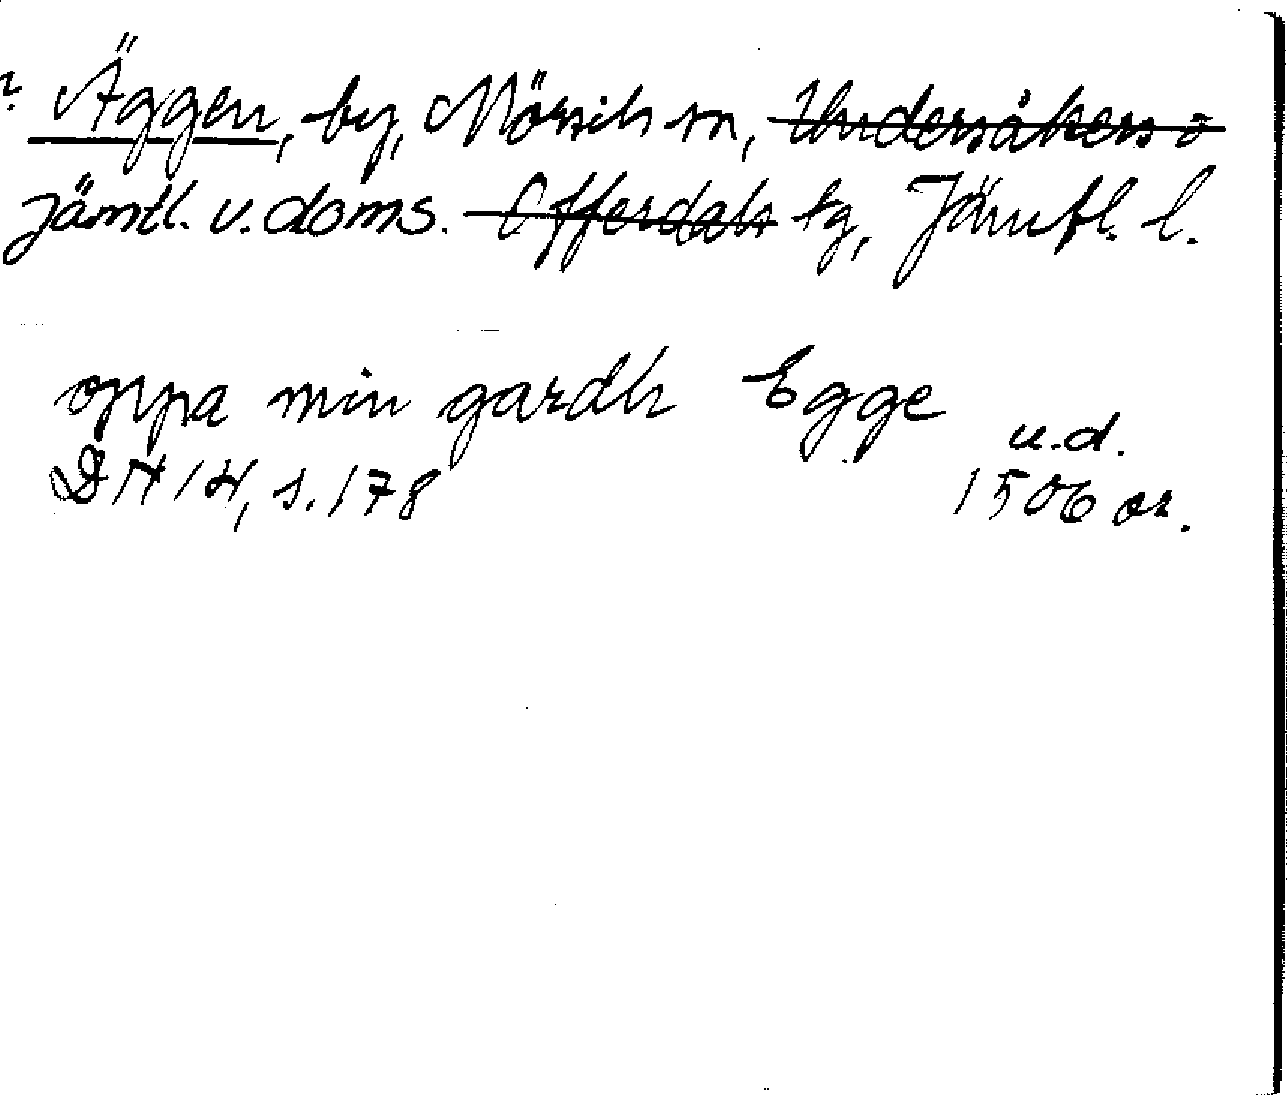 ? Äggen, by, Mörsils sn, Undersåkers o
Jämtl. v. doms. Offerdals tg, Jämtl. l.
oppa min gardh Egge
u.d.
DN 14, s. 178 1506 or.